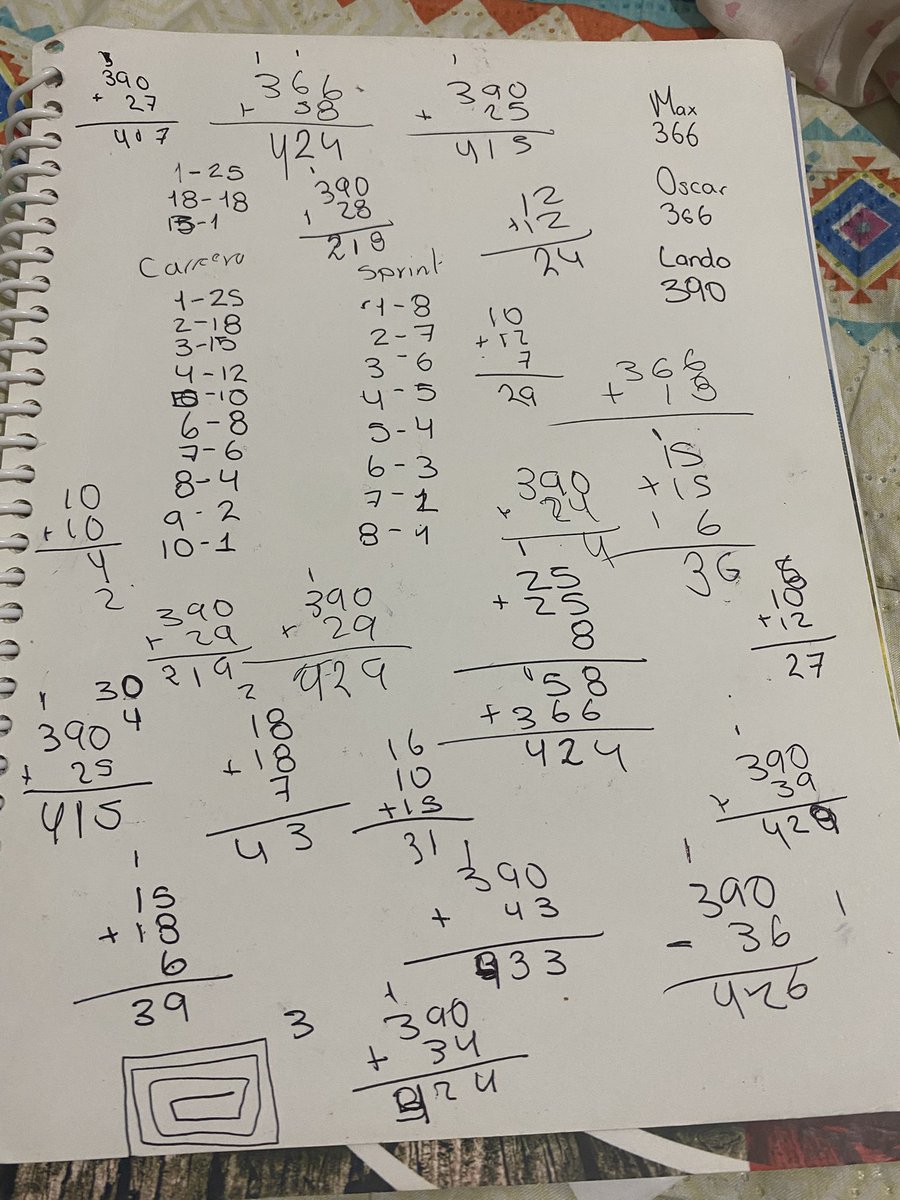 390
+ 27
417
1 1
366
+ 58
424
1
390
+ 25
415
Max
366
Oscar
366
Lando
390
1-25
18-18
15-1
1
390
1 28
219
12
+12
24
Carrera
1-25
2-18
3-15
4-12
5-10
6-8
7-6
8-4
9-2
10-1
Sprint
1-8
2-7
3-6
4-5
5-4
6-3
7-2
8-1
10
+12
7
29
366
+ 18
10
+10
4
2
390
+ 24
1 4
1
15
+15
1 6
36
390
+ 29
219
1
390
+ 29
2 429
25
+ 25
8
58
+366
424
10
+12
27
30
4
1
390
+ 25
415
18
+18
7
43
16
10
+15
31
1
390
+ 39
429
1
15
+18
6
39
1
390
+ 43
433
1
390
- 36
426
1
3
1
390
+ 34
424